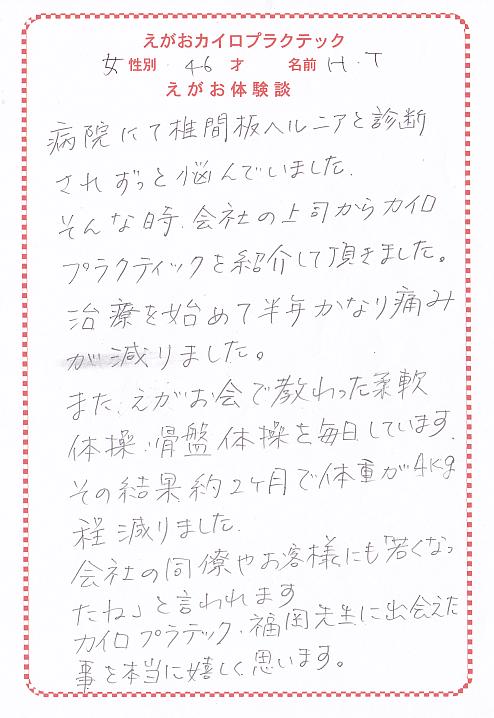 えがおカイロプラクテック
女 性別 46 才 名前 H.T
えがお体験談
病院にて椎間板ヘルニアと診断
されずっと悩んでいました.
そんな時、会社の上司からカイロ
プラクティックを紹介して頂きました。
治療を始めて半年かなり痛み
が減りました。
また、えがお会で教わった柔軟
体操、骨盤体操を毎日しています.
その結果約2ヶ月で体重が4kg
程減りました.
会社の同僚やお客様にも「若くなっ
たね」と言われます
カイロプラテック、福岡先生に出会えた
事を本当に嬉しく思います。